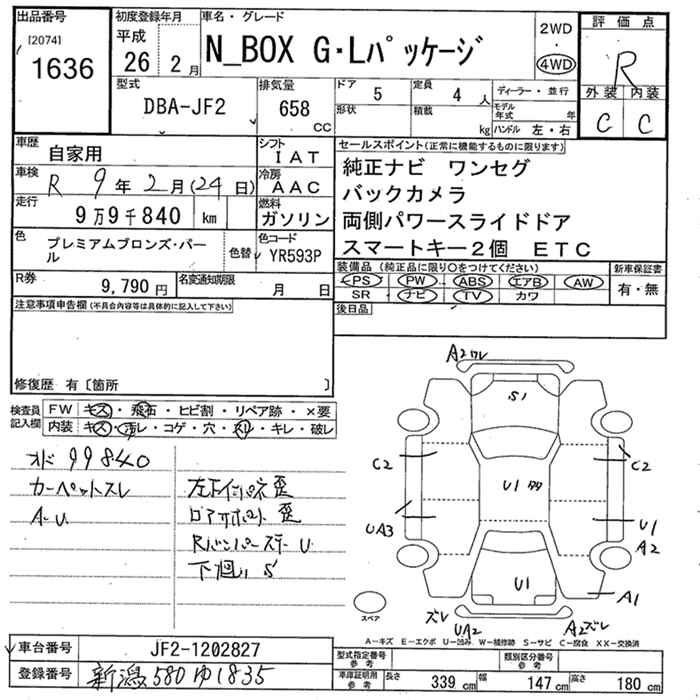 出品番号
[2074]
1636
初度登録年月
平成
26 2月
車名・グレード
N_BOX G・Lパッケージ
2WD
・
4WD
評価点
R
外装 内装
C C
型式
DBA-JF2
排気量
658
CC
ドア
5
定員
4人
形状
積載
kg
ディーラー・並行
モデル年式 年
ハンドル 左・右
車歴
自家用
シフト
IAT
車検
R 9年 2月(24日)
冷房
AAC
走行
9万9千840 km
燃料
ガソリン
色
プレミアムブロンズ・パール
色替
色コード
YR593P
R券
9,790円
名変通知期限
月 日
セールスポイント(正常に機能するものに限ります)
純正ナビ ワンセグ
バックカメラ
両側パワースライドドア
スマートキー2個 ETC
装備品(純正品に限り○をつけてください)
PS PW ABS エアB AW
SR ナビ TV カワ
新車保証書
有・無
後日品
注意事項申告欄(不具合内容等は具体的に記入して下さい)
修復歴 有〔箇所 〕
検査員
記入欄
FW キズ・飛石・ヒビ割・リペア跡・×要
内装 キズ・汚レ・コゲ・穴・スレ・キレ・破レ
オド 99840
カーペットスレ
A・U
左下インパネ歪
ロアサポート歪
Rバンパーステー U
下廻りS
A2ワレ
S1
C2
C2
U1
UA3
U1
A2
U1
A1
ズレ
UA2
A2ズレ
スペア
A-キズ E-エクボ U-凹み W-補修跡 S-サビ C-腐食 XX-交換済
車台番号
JF2-1202827
登録番号
新潟580ゆ1835
型式指定番号
参考
類別区分番号
参考
車庫証明用
参考
長さ 339 cm 幅 147 cm 高さ 180 cm